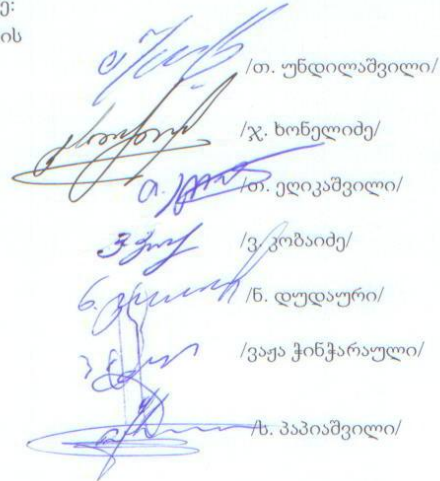 ე:
ის
/თ. უნდილაშვილი/
/ჯ. ხონელიძე/
/თ. ეღიკაშვილი/
/ვ. კობაიძე/
/ნ. დუდაური/
/ვაჟა ჭინჭარაული/
/ს. პაპიაშვილი/